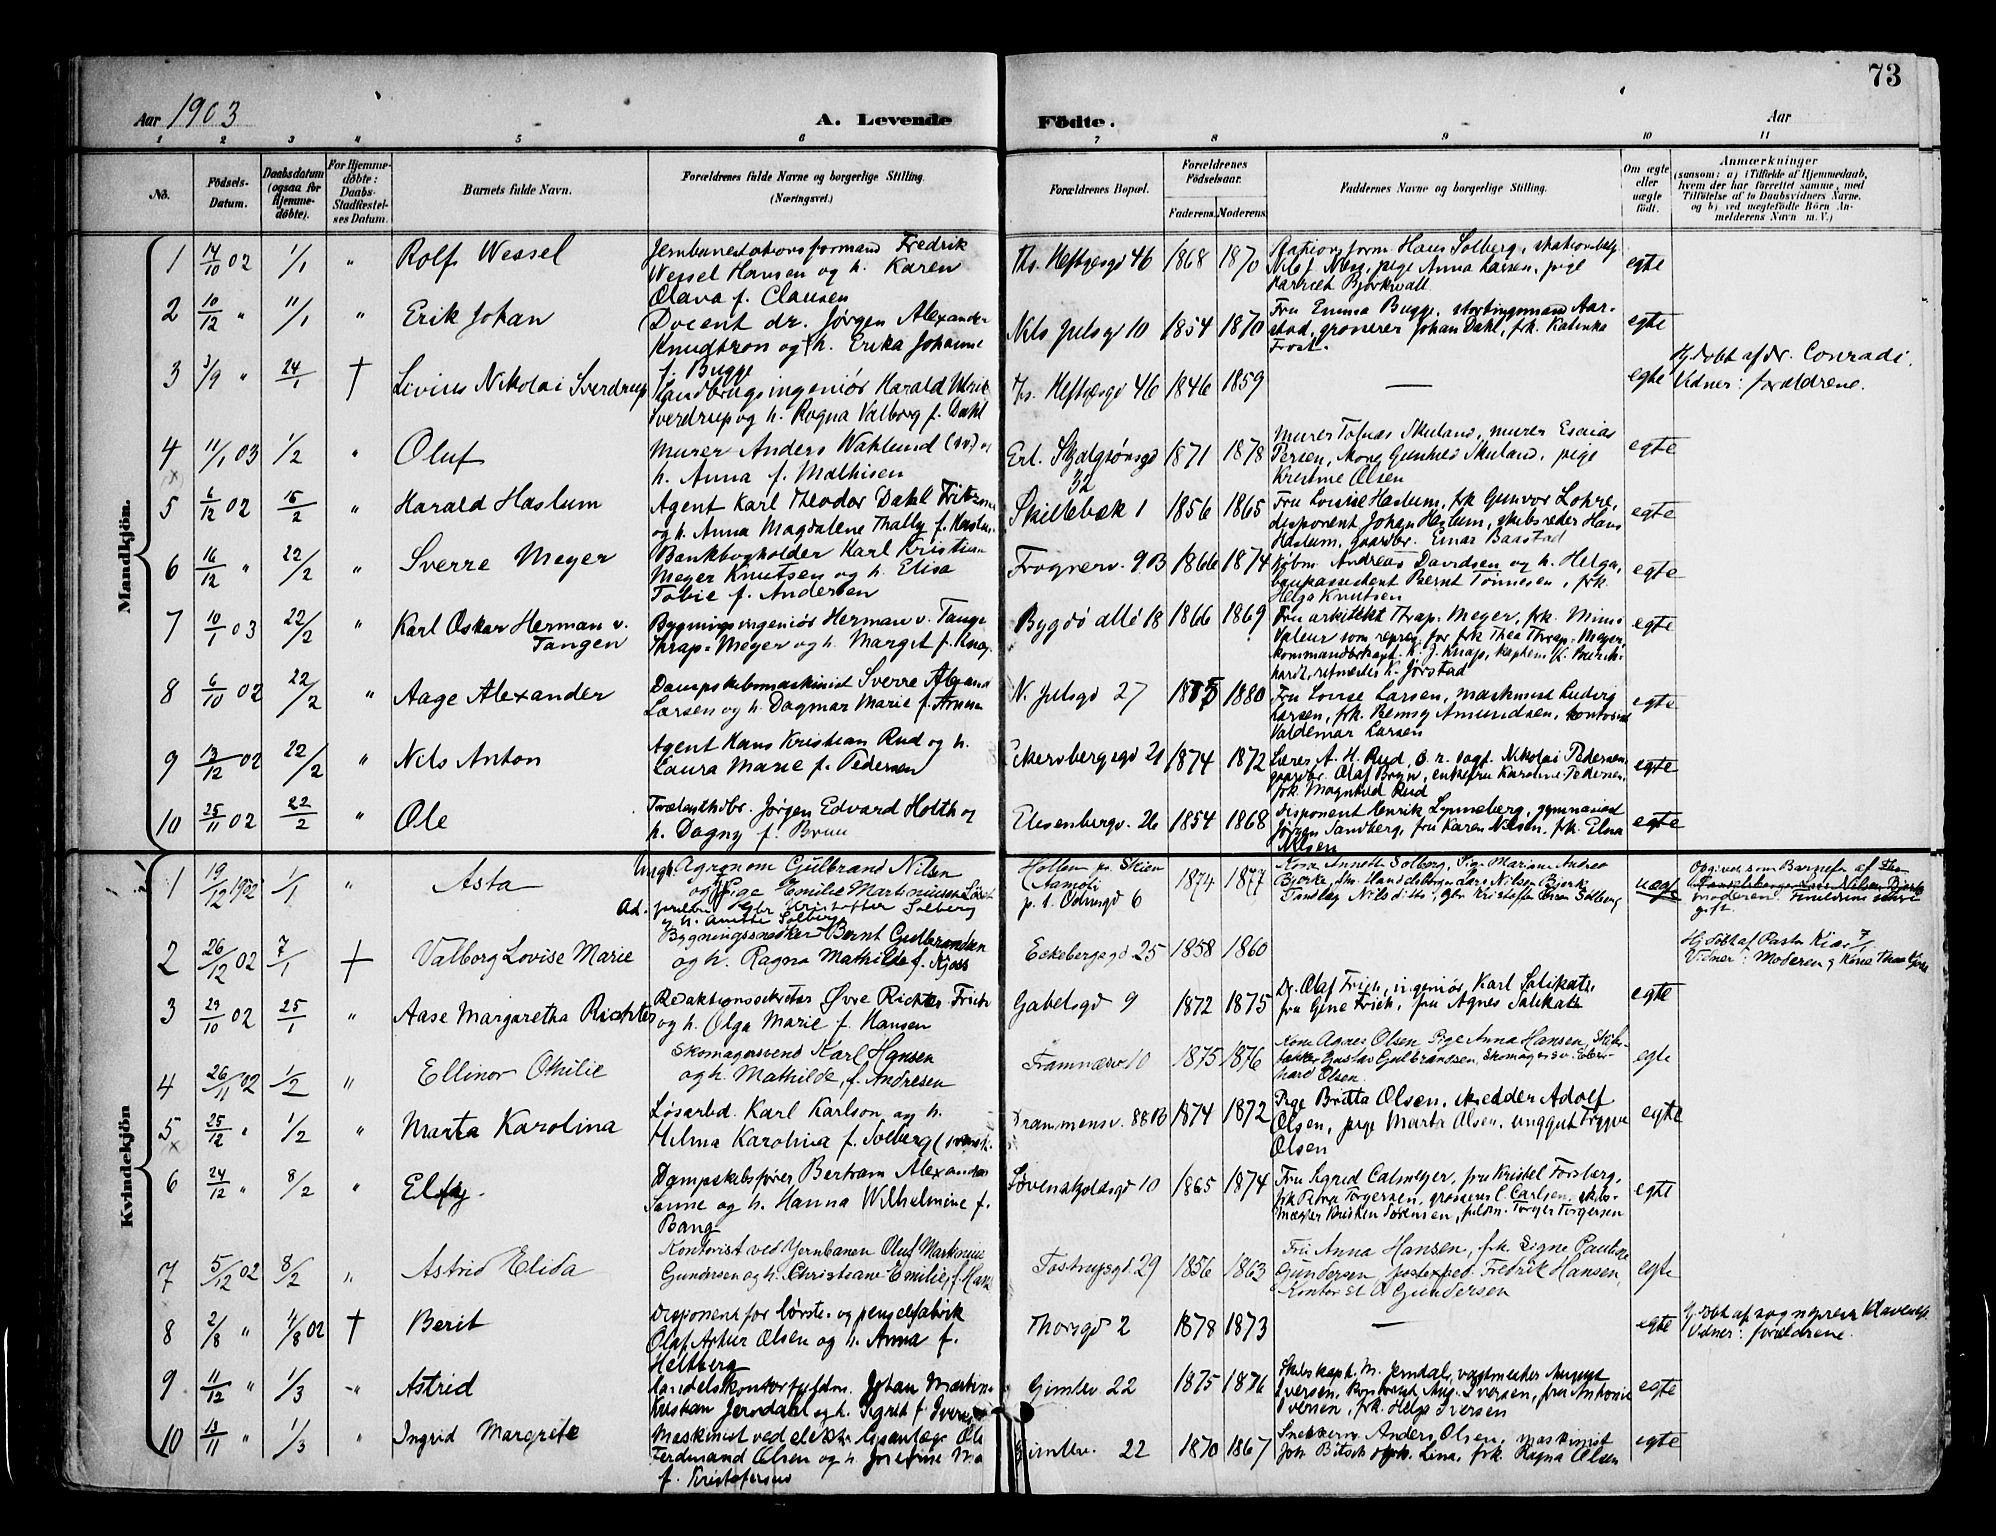 73
Aar 1903
A. Levende
Födte.
Aar
1 2 3 " 5 6 7 8 9 10 11
No.
Födsels-
Datum.
Daabsdatum
(ogsaa for
Hjemme-
døbte).
For Hjemme-
døbte:
Daabs-
Stadfæstel-
ses Datum.
Barnets fulde Navn.
Forældrenes fulde Navne og borgerlige Stilling.
(Næringsvei.)
Forældrenes Bopæl.
Forældrenes
Födselsaar.
Faderens. Moderens.
Faddernes Navne og borgerlige Stilling.
Om ægte
eller
uægte
født.
Anmærkninger
(saasom: a) i Tilfælde af Hjemmedaab,
hvem der har forrettet samme, med
Tilföielse af to Daabsvidners Navne,
og b) ved uægtefödte Börn An-
melderens Navn m. V.)
Mandkjön.
1 14/10 02 1/1 " Rolf Wessel
Jernbanestationsformand Fredrik
Wessel Hansen og h. Karen
Olava f. Clausen
Th. Heftyesgd 46 1868 1870
Stationsform Hans Solberg, stationsbetj
Nils J. , pige Anna Larsen, pige
Bjørkwall
egte
2 10/12 " 11/1 " Erik Johan
Docent dr. Jørgen Alexander
Knudtzon og h. Erika Johanne
f. Bugge
Nils Juelsg 10 1854 1870
Fru Emma Bugge, stortingsmand Aar-
stad, grosserer Johan Dahl, frk. Katinka
Frost.
egte
3 3/9 " 24/1 † Livius Nikolai Sverdrup
Landbrugsingeniör Harald Ulrik
Sverdrup og h. Ragna Valborg f. Dahl
Th. Heftyesgd 46 1846 1859
—
egte
Hj.døbt af dr. Conradi.
Vidner: forældrene.
4 11/1 03 1/2 " Oluf
Murer Anders Wahlund (sv.) og
h. Anna f. Mathisen
Erl. Skjalgsönsgd
32
1871 1878
Murer Tobias Skuland, murer Esaias
Persen, kone Gunhild Skuland, pige
Kristine Olsen
egte
x
5 6/12 02 15/2 " Harald Haslum
Agent Karl Theodor Dahl
og h. Anna Magdalene Thally f. Haslum
Skillebæk 1 1856 1865
Fru Lovise Haslum, frk Gunvor Lohre,
disponent Johan Haslum, skibsreder Hans
Haslum, gaardbr. Einar Baastad
egte
6 16/12 " 22/2 " Sverre Meyer
Bankbogholder Karl Kristian
Meyer Knutsen og h. Elisa
Tobie f. Andersen
Frognerv. 9B 1866 1874
Købm. Andreas Davidsen og h. Helga,
bankassistent Bernt Tönnesen, frk.
Helga Knutsen
egte
7 10/1 03 22/2 " Karl Oskar Herman v.
Tangen
Bygningsingeniör Herman v. Tange
Thrap-Meyer og h. Margit f. Knap
Bygdö allé 18 1866 1869
Fru arkitekt Thrap-Meyer, frk. Minna
Valeur som repræs. for frk Thea Thrap-Meyer,
kommandörkapt. K. J. Knap, kaptein
K. Jørstad
egte
8 6/10 02 22/2 " Aage Alexander
Dampskibsmaskinist Sverre Alexand
Larsen og h. Dagmar Marie f. Amun
N. Juelsgd 27 1875 1880
Fru Lovise Larsen, maskinist Ludvig
Larsen, frk. Bensy Amundsen, kontorist
Valdemar Larsen
egte
9 13/12 02 22/2 " Nils Anton
Agent Hans Kristian Rud og h.
Laura Marie f. Pedersen
Eckersbergsgd 21 1874 1872
Lærer A. H. Rud, o. r. sagf. Nikolai Pedersen,
gaardbr. Olaf Bryn, enkefru Karoline Pedersen,
frk. Magnhild Rud
egte
10 25/11 02 22/2 " Ole
Trælasthdbr. Jørgen Edvard Holth og
h. Dagny f. Bruu
Elisenbergv. 26 1854 1868
Disponent Henrik Lynneberg, gymnasiast
Jørgen Sandberg, fru Karen Nilsen, frk. Elna
Nilsen
egte
Kvindekjön
1 19/12 1902 1/1 " Asta
Ungk. Agronom Gulbrand Nilsen
og Pige Emilie Martiniussen
Ad. forældre Kristoffer Solberg
og h. Anette Solberg
Hollen pr. Skien
(Aamot)
p. t. Odinsgd 6
1874 1877
Kone Annette Solberg, Pige Mariane Andrea
Bjerke, Handelsborger Lars Nilsen Bjerke,
Tandlæg Nils ditto, Gbr Kristoffer Olsen Solberg
uegte
Opgivet som Barnefar af
moderen. Forældrene senere
gift.
2 26/12 02 7/1 † Valborg Lovise Marie
Bygningssnedker Bernt Gulbrandsen
og h. Ragna Mathilde f. Kjøss
Eckebergsgd 25 1858 1860
Hj døbt af Pastor Kiær 7/1
Vidner: Moderen og Kone
3 29/10 02 25/1 " Aase Margaretha Richter
Redaktionssekretær Øvre Richter Frich
og h. Olga Marie f. Hansen
Gabelsgd 9 1872 1875
Dr. Olaf Frich, ingeniör Karl Salikath,
fru Gine Frich, fru Agnes Salikath
egte
4 26/11 02 1/2 " Ellinor Othilie
Skomagersvend Karl Hansen
og h. Mathilde, f. Andresen
Framnæsv 10 1875 1876
Kone Agnes Olsen Pige Anna Hansen,
Gustav Gulbrandsen, Skomagersv. Eber-
hard Olsen.
egte
5 25/12 " 1/2 " Marta Karolina
x
Løsarbd. Karl Karlson, og h.
Hilma Karolina f. Solberg (svensk.
Drammensv. 88B 1874 1872
Pige Britta Olsen, skredder Adolf
Olsen, pige Marta Olsen, unggut Trygve
Olsen
egte
6 24/12 " 8/2 " Elfy.
Dampskibsfører Bertram Alexander
Sanne og h. Hanna Wilhelmine f.
Bang
Løvenskjoldsgd 10 1865 1874
Fru Sigrid Calmeyer, fru Kristel Forsberg,
frk Petra Torgersen, grosserer C. Carlsen, skibs-
mægler Sörensen, Torger Torgersen
egte
7 5/12 02 8/2 " Astrid Elida
Kontorist ved Jernbanen Oluf Martinius
Gundersen og h. Christiane Emilie f. Hans
Tostrupsgd. 29 1856 1863
Fru Anna Hansen, frk. Signe Pauline
Gundersen postexped. Fredrik Hansen,
Kontorist O Gundersen
egte
8 2/8 " 4/8 02 † Berit
Disponent for børste- og penselfabrik
Olaf Artur Olsen og h. Anna f.
Heltberg
Thorsgd 2 1878 1873
—
egte
Hj. døbt af sogneprest Klaveness.
Vidner: forældrene.
9 11/12 " 1/3 " Astrid
Handelskontorfuldm. Johan Martin
Kristian Jerndahl og h. Sigrid f. Iversen
Gimlev. 22 1875 1876
Skibskapt. M. Jerndal, vagtmester August
Iversen, Aug. Iversen, fru Antonie
Iversen, frk. Helga Iversen
egte
10 13/11 " 1/3 " Ingrid Margrete
Maskinist ved elektr. lysanlægg Ole
Ferdinand Olsen og h Josefine Ma
f. Kristofersen
Gimlev. 22 1870 1867
Snekkerm. Anders Olsen, maskinist
Joh. Bitsch og h. Lina, frk. Ragna Olsen
egte